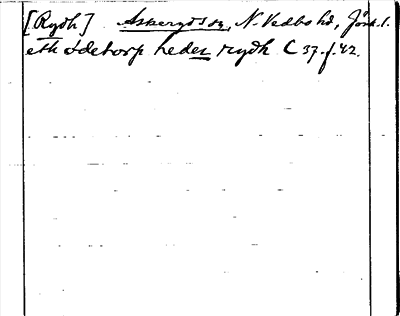 [Rydh] Askeryds sn, N. Vedbo hd, Jönk. l.
eth ødetorp heder rydh C 37. f. 42.